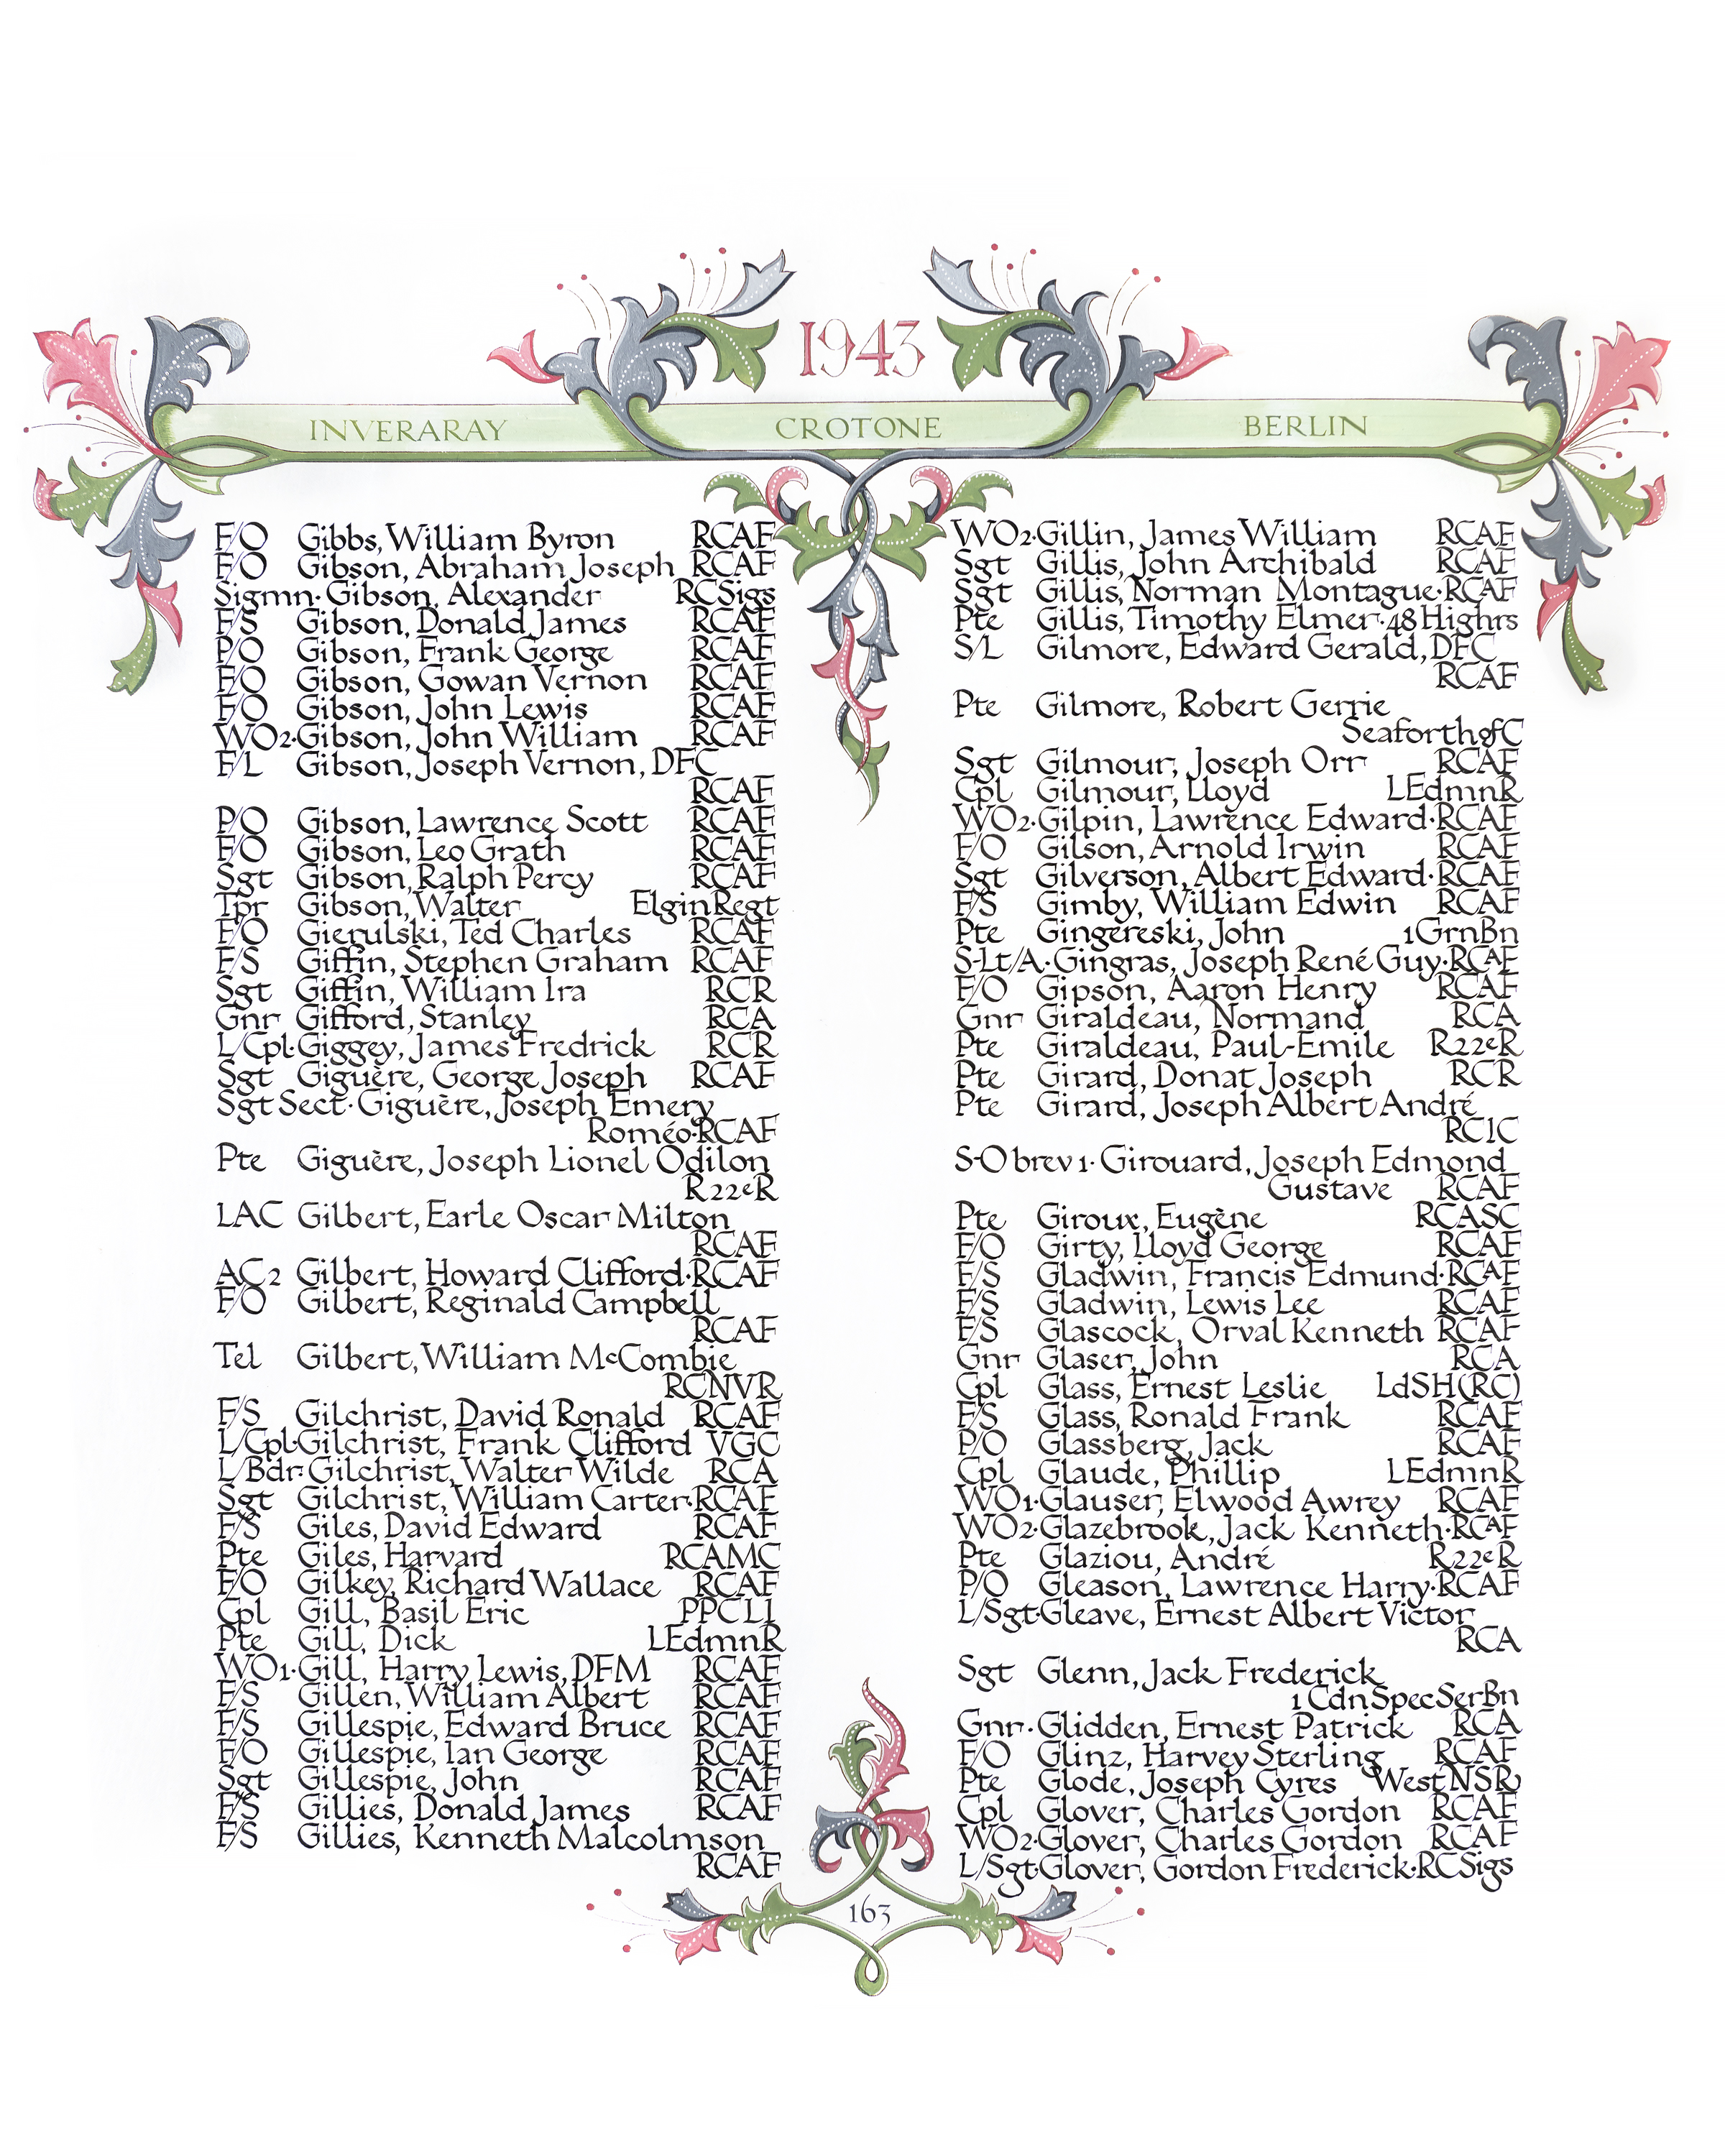 1943
INVERARAY CROTONE BERLIN
F/O Gibbs, William Byron RCAF
F/O Gibson, Abraham Joseph RCAF
Sigmn· Gibson, Alexander RCSigs
F/S Gibson, Donald James RCAF
P/O Gibson, Frank George RCAF
F/O Gibson, Gowan Vernon RCAF
F/O Gibson, John Lewis RCAF
WO2·Gibson, John William RCAF
F/L Gibson, Joseph Vernon, DFC
RCAF
P/O Gibson, Lawrence Scott RCAF
F/O Gibson, Leo Grath RCAF
Sgt Gibson, Ralph Percy RCAF
Tpr Gibson, Walter ElginRegt
F/O Gierulski, Ted Charles RCAF
F/S Giffin, Stephen Graham RCAF
Sgt Giffin, William Ira RCR
Gnr Gifford, Stanley RCA
L/Cpl·Giggey, James Fredrick RCR
Sgt Giguère, George Joseph RCAF
Sgt Sect·Giguère, Joseph Emery
Roméo·RCAF
Pte Giguère, Joseph Lionel Odilon
R22eR
LAC Gilbert, Earle Oscar Milton
RCAF
AC2 Gilbert, Howard Clifford·RCAF
F/O Gilbert, Reginald Campbell
RCAF
Tel Gilbert, William McCombie
RCNVR
F/S Gilchrist, David Ronald RCAF
L/Cpl·Gilchrist, Frank Clifford VGC
L/Bdr·Gilchrist, Walter Wilde RCA
Sgt Gilchrist, William Carter·RCAF
F/S Giles, David Edward RCAF
Pte Giles, Harvard RCAMC
F/O Gilkey, Richard Wallace RCAF
Cpl Gill, Basil Eric PPCLI
Pte Gill, Dick LEdmnR
WO1·Gill, Harry Lewis, DFM RCAF
F/S Gillen, William Albert RCAF
F/S Gillespie, Edward Bruce RCAF
F/O Gillespie, Ian George RCAF
Sgt Gillespie, John RCAF
F/S Gillies, Donald James RCAF
F/S Gillies, Kenneth Malcolmson
RCAF
WO2·Gillin, James William RCAF
Sgt Gillis, John Archibald RCAF
Sgt Gillis, Norman Montague·RCAF
Pte Gillis, Timothy Elmer·48Highrs
S/L Gilmore, Edward Gerald, DFC
RCAF
Pte Gilmore, Robert Gerrie
SeaforthofC
Sgt Gilmour, Joseph Orr RCAF
Cpl Gilmour, Lloyd LEdmnR
WO2·Gilpin, Lawrence Edward·RCAF
F/O Gilson, Arnold Irwin RCAF
Sgt Gilverson, Albert Edward·RCAF
F/S Gimby, William Edwin RCAF
Pte Gingereski, John 1GrnBn
S-Lt/A·Gingras, Joseph René Guy·RCAF
F/O Gipson, Aaron Henry RCAF
Gnr Giraldeau, Normand RCA
Pte Giraldeau, Paul-Emile R22eR
Pte Girard, Donat Joseph RCR
Pte Girard, Joseph Albert André
RCIC
S-O brev 1· Girouard, Joseph Edmond
Gustave RCAF
Pte Giroux, Eugène RCASC
F/O Girty, Lloyd George RCAF
F/S Gladwin, Francis Edmund·RCAF
F/S Gladwin, Lewis Lee RCAF
F/S Glascock, Orval Kenneth RCAF
Gnr Glaser, John RCA
Cpl Glass, Ernest Leslie LdSH(RC)
F/S Glass, Ronald Frank RCAF
P/O Glassberg, Jack RCAF
Cpl Glaude, Phillip LEdmnR
WO1·Glauser, Elwood Awrey RCAF
WO2·Glazebrook, Jack Kenneth·RCAF
Pte Glaziou, André R22eR
P/O Gleason, Lawrence Harry·RCAF
L/Sgt·Gleave, Ernest Albert Victor
RCA
Sgt Glenn, Jack Frederick
1CdnSpecSerBn
Gnr·Glidden, Ernest Patrick RCA
F/O Glinz, Harvey Sterling RCAF
Pte Glode, Joseph Cyres WestNSR
Cpl Glover, Charles Gordon RCAF
WO2·Glover, Charles Gordon RCAF
L/Sgt·Glover, Gordon Frederick·RCSigs
163